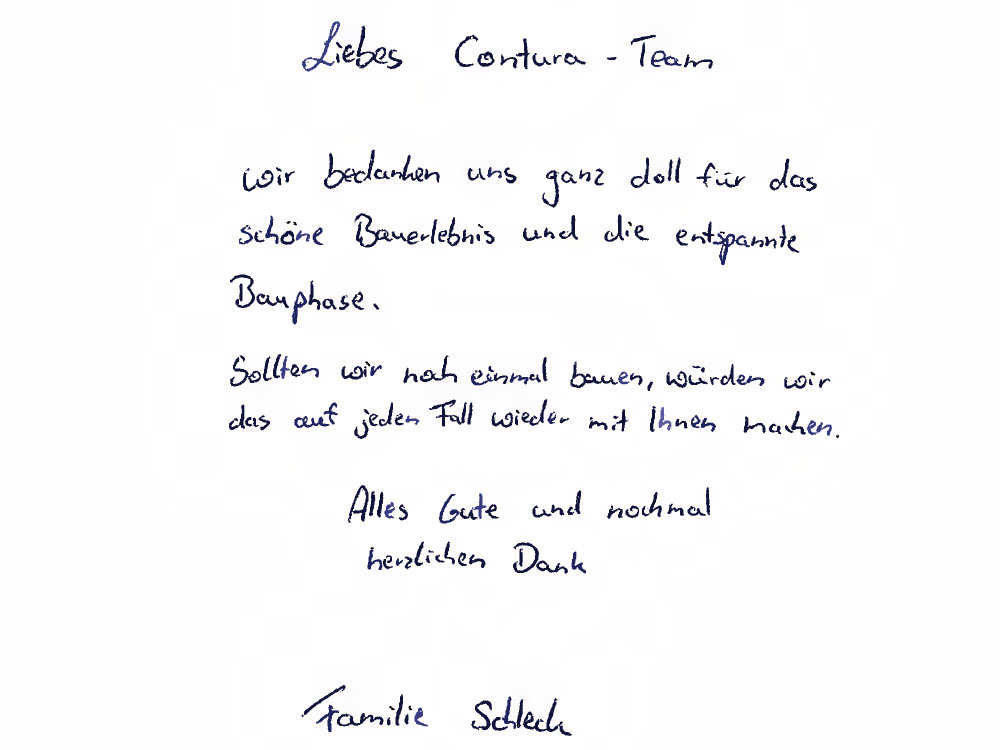 Liebes Contura - Team
wir bedanken uns ganz doll für das
schöne Bauerlebnis und die entspannte
Bauphase.
Sollten wir noch einmal bauen, würden wir
das auf jeden Fall wieder mit Ihnen machen.
Alles Gute und nochmal
herzlichen Dank
Familie Schleck